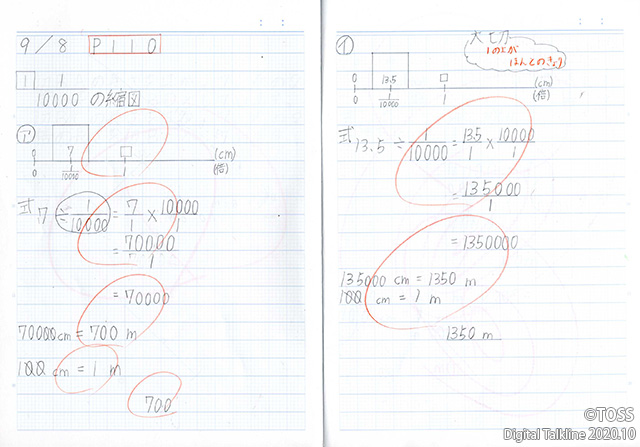 9/8 P110
1 1/10000 の縮図
ア
0 7 □ (cm)
0 1/10000 1 (倍)
式 7 ÷ 1/10000 = 7/1 × 10000/1
= 70000/1
= 70000
70000cm = 700 m
100 cm = 1 m
700
イ
大切
1のとが
ほんとのきょり
0 13.5 □ (cm)
0 1/10000 1 (倍)
式 13.5 ÷ 1/10000 = 13.5/1 × 10000/1
= 135000/1
= 1350000
135000 cm = 1350 m
100 cm = 1 m
1350 m
©TOSS
Digital Talkline 2020.10